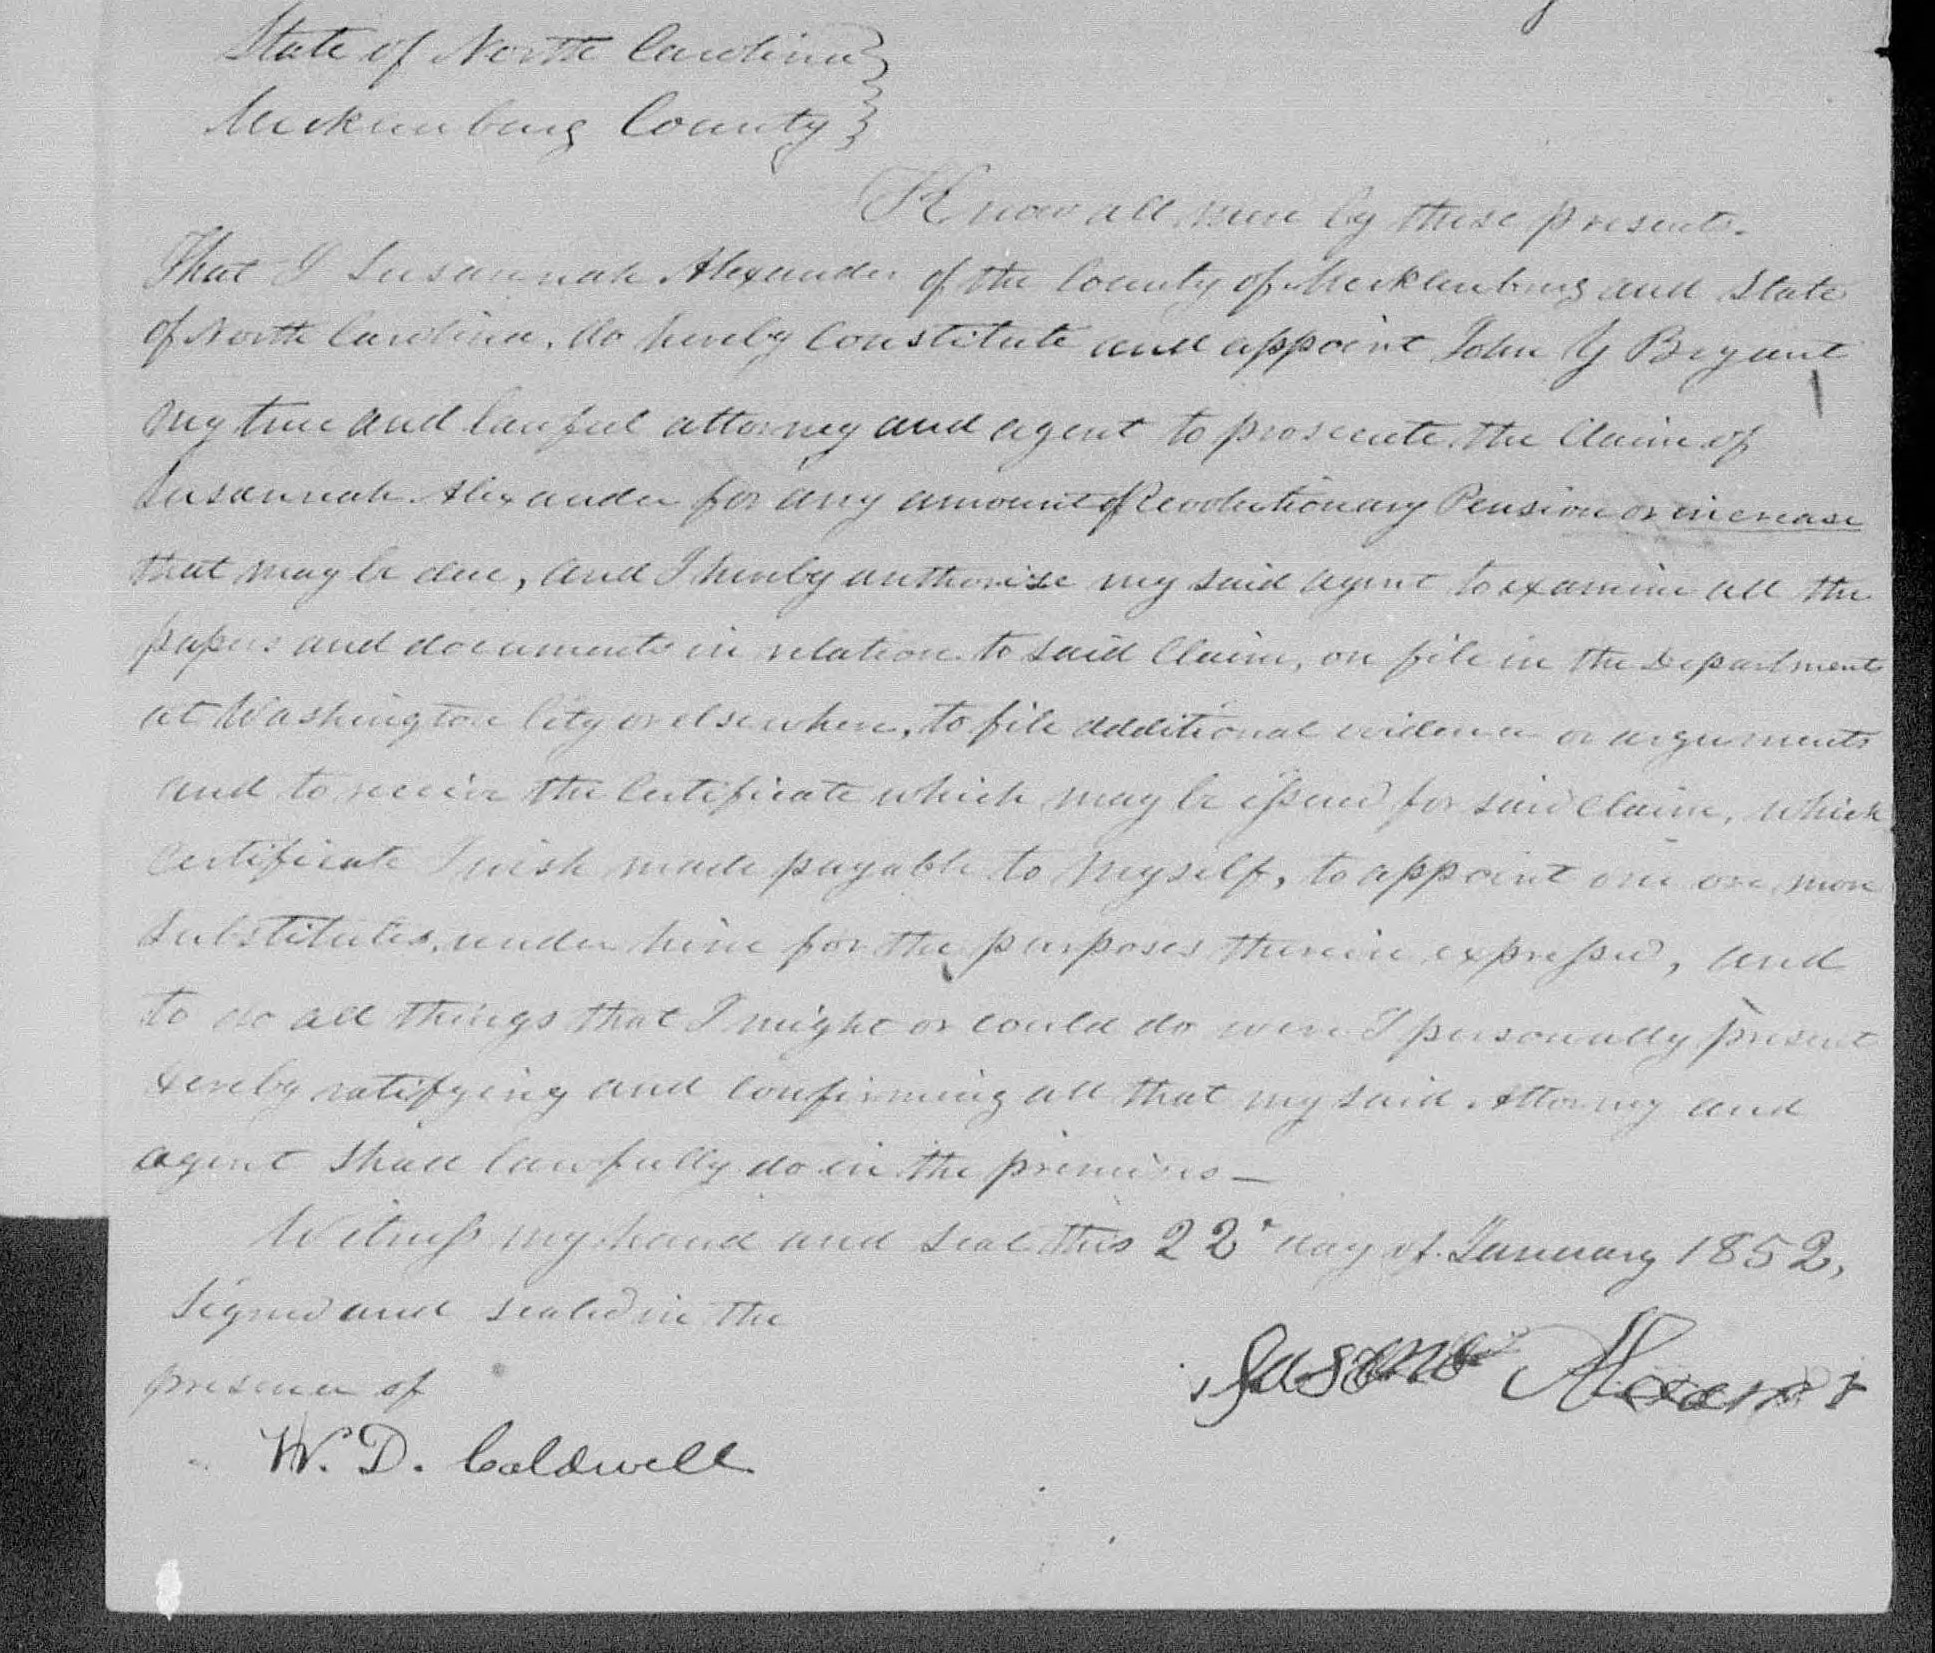 State of North Carolina }
Mecklenburg County }
Know all men by these presents.
That I Susannah Alexander of the County of Mecklenburg and State
of North Carolina, do hereby constitute and appoint John Y Bryant
my true and lawful attorney and agent to prosecute the Claim of
Susannah Alexander for any amount of Revolutionary Pension or increase
that may be due, and I hereby authorise my said agent to examine all the
papers and documents in relation to said Claim, on file in the Department
at Washington City or elsewhere, to file additional evidence or arguments
and to receive the Certificate which may be issued for said Claim, which
Certificate I wish made payable to myself, to appoint one or more
substitutes, under him for the purposes therein expressed, and
to do all things that I might or could do were I personally present
hereby ratifying and confirming all that my said Attorney and
agent shall lawfully do in the premises —
Witness my hand and seal this 22d day of January 1852,
Signed and sealed in the
presence of
Alexander
W. D. Caldwell